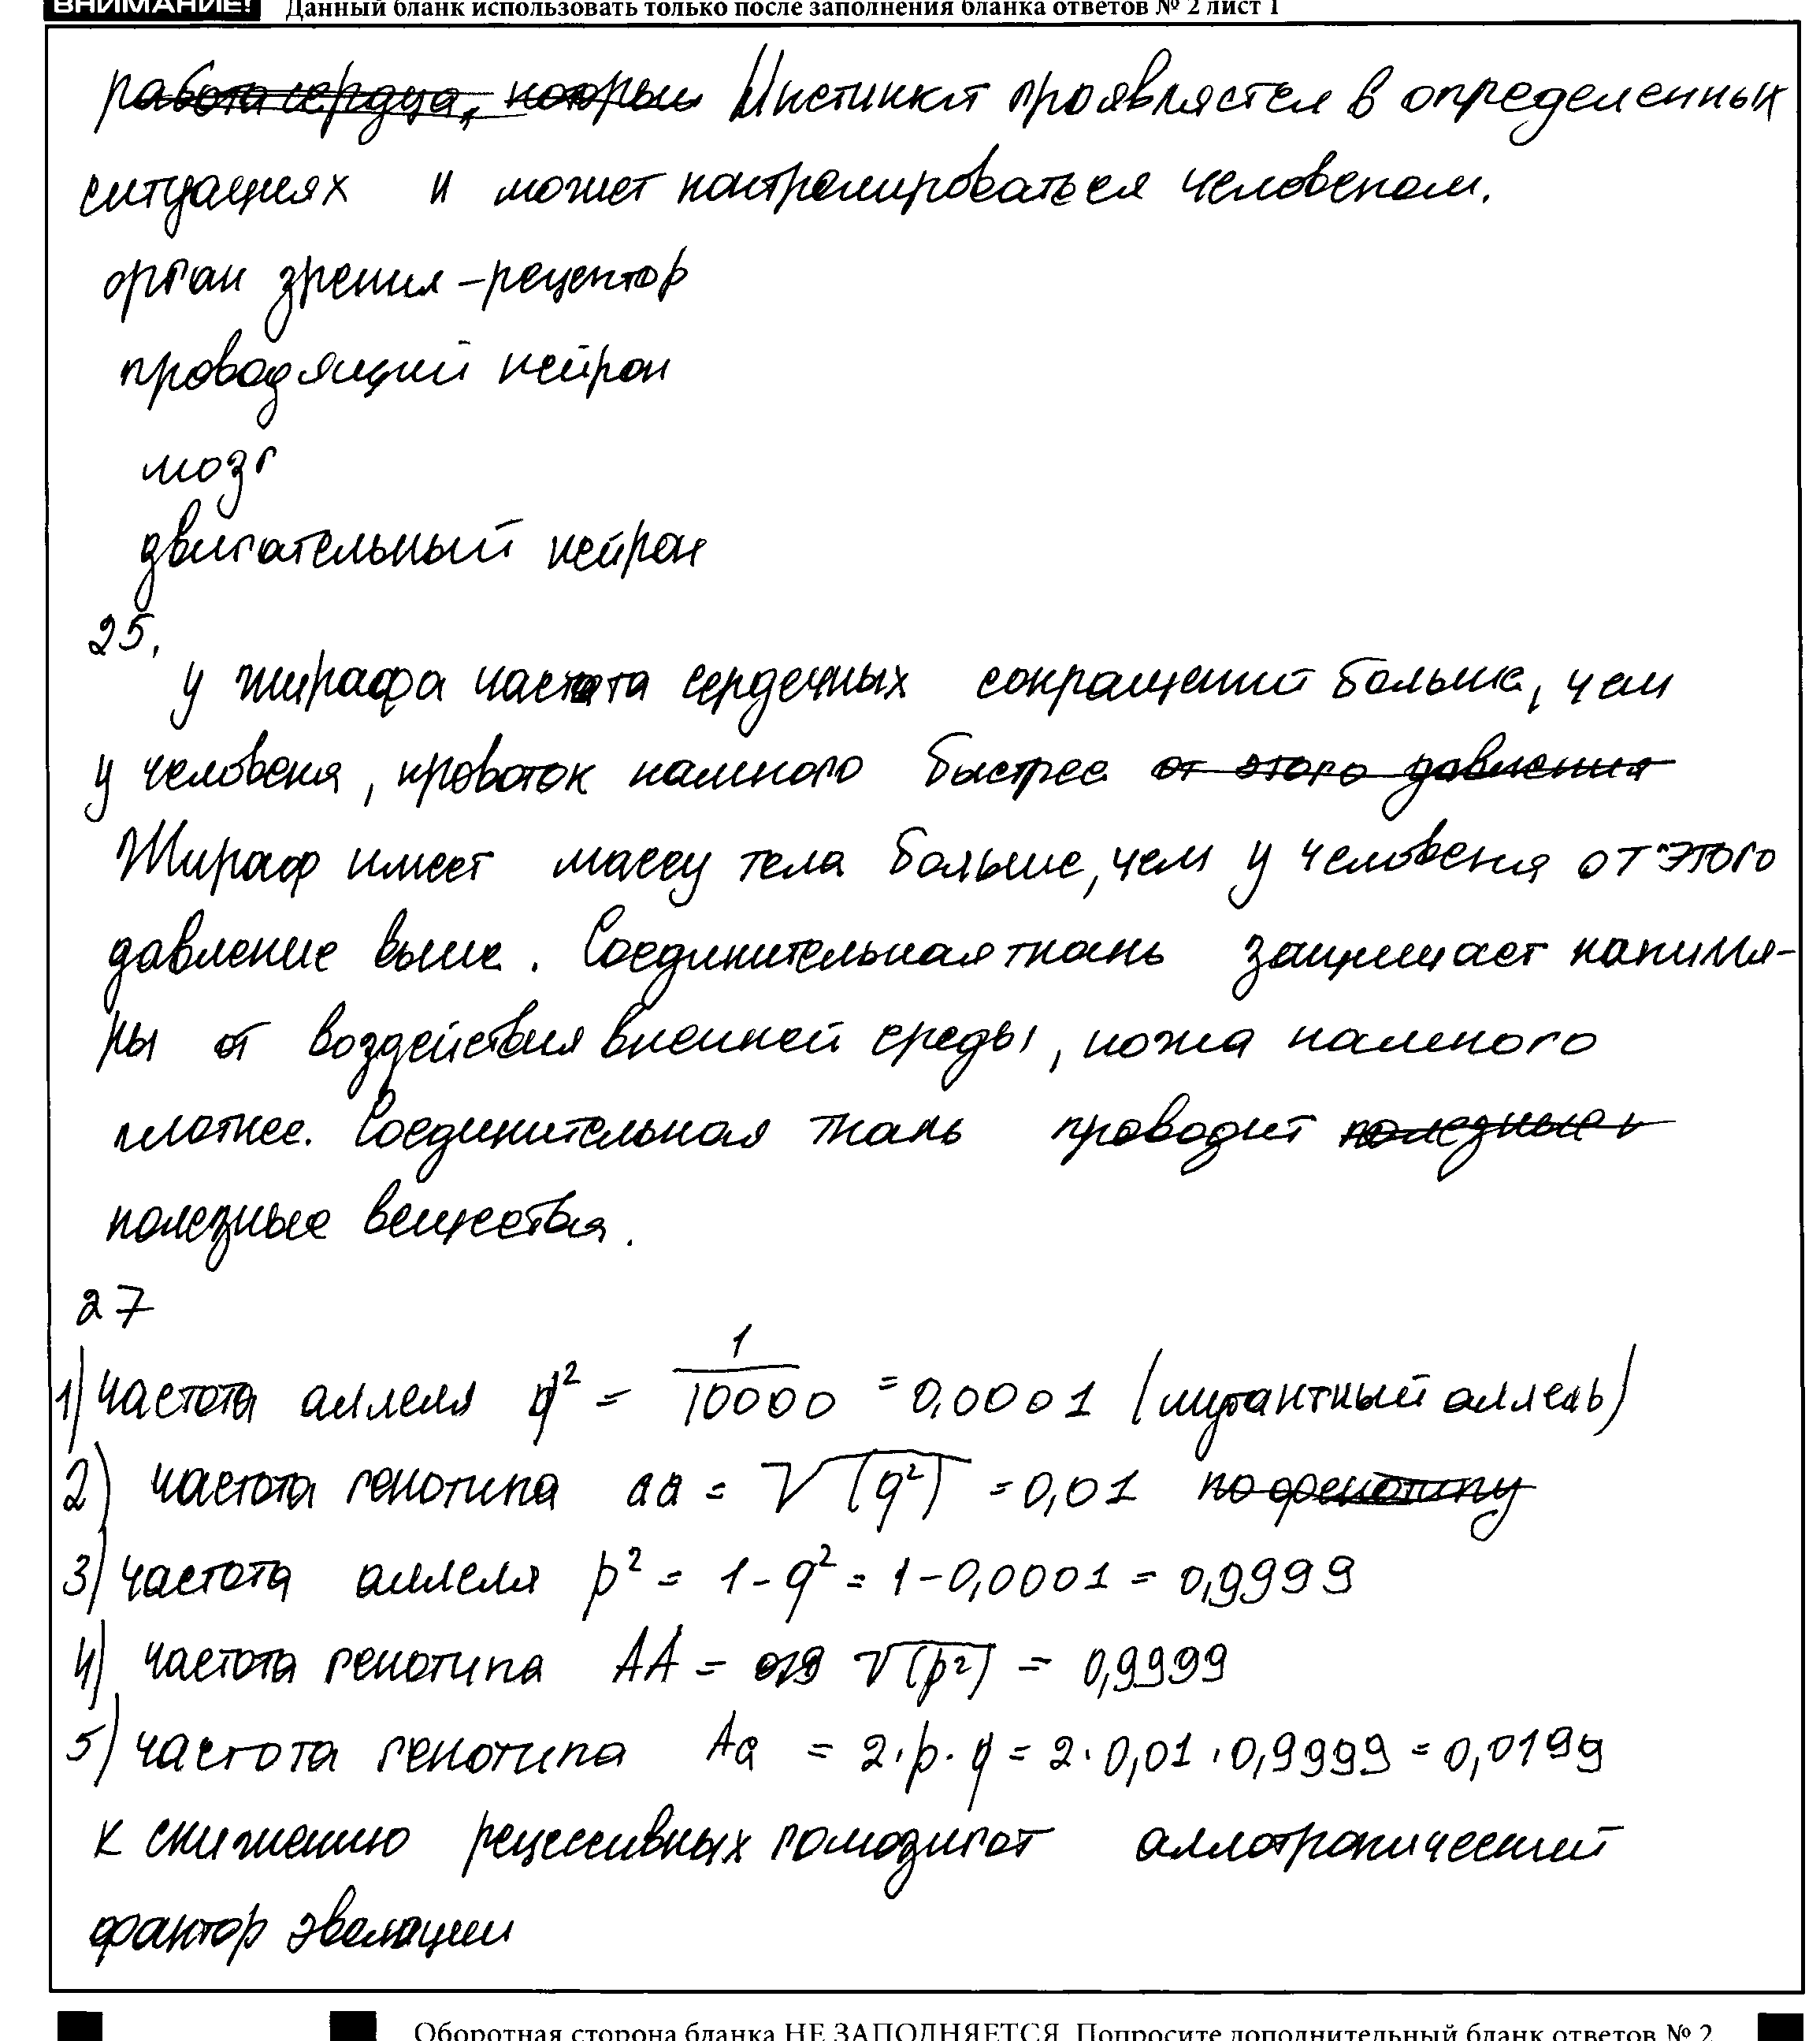 ВНИМАНИЕ! Данный бланк использовать только после заполнения бланка ответов № 2 лист 1
работа сердца, которы Инстинкт проявляется в определенных
ситуациях и может контролироваться человеком.
орган зрения - рецептор
проводящий нейрон
мозг
двигательный нейрон
25.
у жирафа частота сердечных сокращений больше, чем
у человека, кровоток намного быстрее от этого давления
Жираф имеет массу тела больше, чем у человека от этого
давление выше. Соединительная ткань защищает капилля-
ры от воздействия внешней среды, кожа намного
плотнее. Соединительная ткань проводит полезные в
полезные вещества.
27
1) частота аллеля q² = 1/10000 = 0,0001 (мутантный аллель)
2) частота генотипа aa = √(q²) = 0,01 по фенотипу
3) частота аллеля p² = 1 - q² = 1 - 0,0001 = 0,9999
4) частота генотипа AA = √(p²) = 0,9999
5) частота генотипа Aa = 2·p·q = 2·0,01·0,9999 = 0,0199
к снижению рецессивных гомозигот аллотропический
фактор эволюции
Оборотная сторона бланка НЕ ЗАПОЛНЯЕТСЯ. Попросите дополнительный бланк ответов № 2